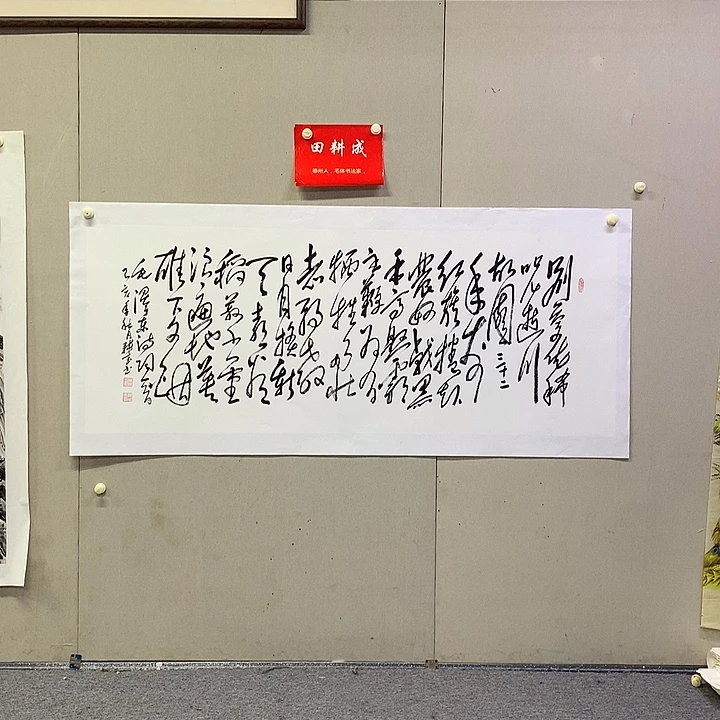 田耕成
德州人,毛体书法家。
别梦依稀
咒逝川
故園三十二
年前
红旗捲起
農奴戟黑
手高懸霸
主鞭为有
牺牲多壮
志敢教
日月換新
天喜看
稻菽千重
浪遍地英
雄下夕烟
毛澤东诗词
己亥年秋月耕成书